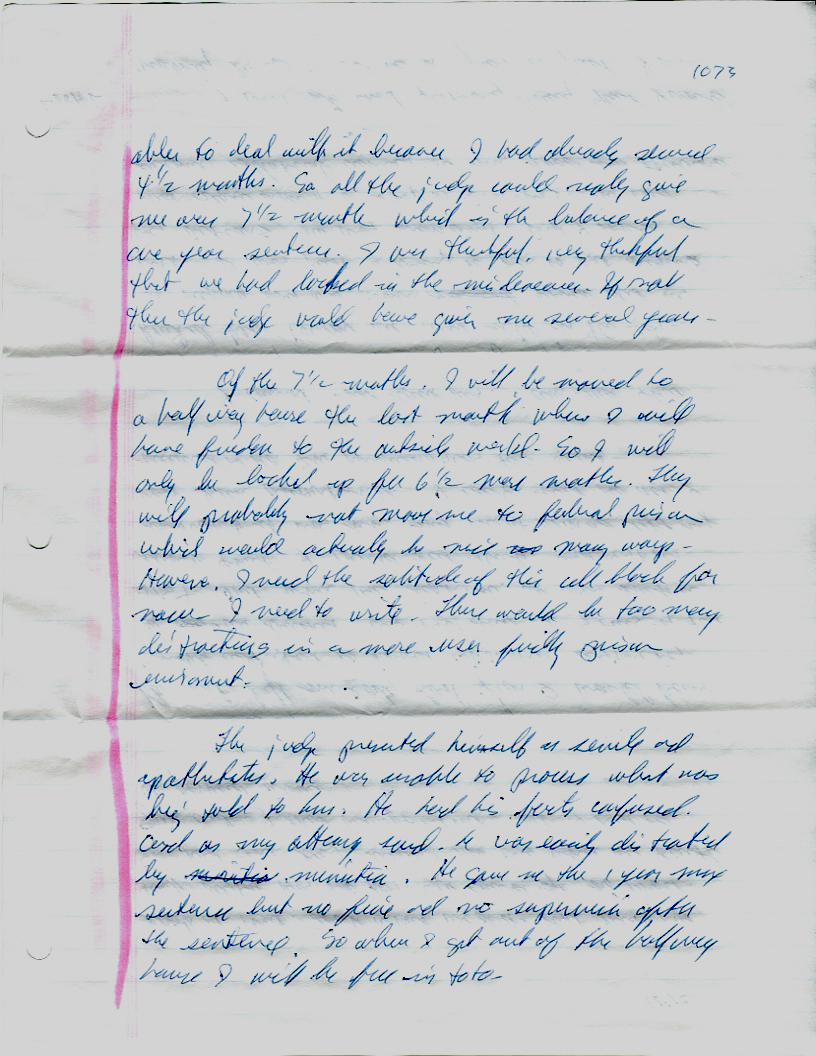 1073
able to deal with it because I had already served
4 1/2 months. So all the judge could really give
me was 7 1/2 month which is the balance of a
one year sentence. I was thankful, very thankful
that we had locked in the misdemeanor. If not
then the judge would have given me several years-
Of the 7 1/2 months. I will be moved to
a half way house the last month when I will
have freedom to the outside world. So I will
only be locked up for 6 1/2 more months. They
will probably not move me to federal prison
which would actually be nice many ways-
However, I need the solitude of this cell block for
now- I need to write. There would be too many
distracting in a more user friendly prison
environment.
The judge presented himself as senile and
. He was unable to process what was
being told to him. He had his facts confused.
And as my attorney said. he was easily distracted
by minutia. He gave me the 1 year max
sentence but no fine and no supervision after
the sentence. So when I get out of the halfway
house I will be free in toto-